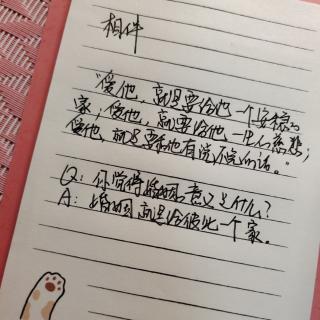 相伴
“爱他，就是要给他一个安稳的
家；爱他，就要给他一生的慈悲；
爱他，就是要和他有说不完的话。”
Q：你觉得婚姻的意义是什么？
A：婚姻就是给彼此一个家。